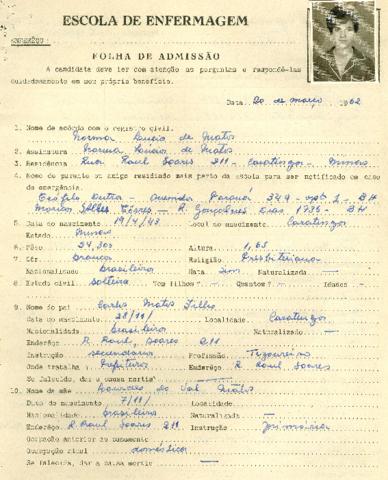 ESCOLA DE ENFERMAGEM
ENDERÊÇO:
FOLHA DE ADMISSÃO
A candidata deve ler com atenção as perguntas e respondê-las
cuidadosamente em seu próprio benefício.
Data 20 de março 1962
1. Nome de acôrdo com o registro civil.
Norma Lúcia de Matos
2. Assinatura Norma Lúcia de Matos
3. Residência Rua Raul Soares 211 - Caratinga - Minas
4. Nome de parente ou amigo residindo mais perto da escola para ser notificado em caso
de emergência.
Teófilo Dutra - Avenida Paraná 349 - apt 2 - BH
R. Gonçalves Dias 1735 - BH
5. Data do nascimento 19/4/43 Local do nascimento Caratinga
Estado Minas
6. Pêso: Altura: 1,65
7. Côr: branca Religião: Presbiteriana
Nacionalidade brasileira Nata sim Naturalizada —
8. Estado civil: solteira Tem filhos? — Quantos? — Idades —
9. Nome do pai Carlos Matos Filho
Data do nascimento 28/11/ Localidade Caratinga
Nacionalidade brasileira Naturalizado —
Enderêço R. Raul Soares 211
Instrução secundário Profissão: Tesoureiro
Onde trabalha: Prefeitura Enderêço: R Raul Soares
Se falecido, dar a causa mortis —
10. Nome da mãe Lourdes do Val Matos
Data do nascimento 7/11/ Localidade
Nacionalidade brasileira Naturalizada —
Enderêço R Raul Soares 211 Instrução primária
Ocupação anterior ao casamento
Ocupação atual doméstica
Se falecida, dar a causa mortis —